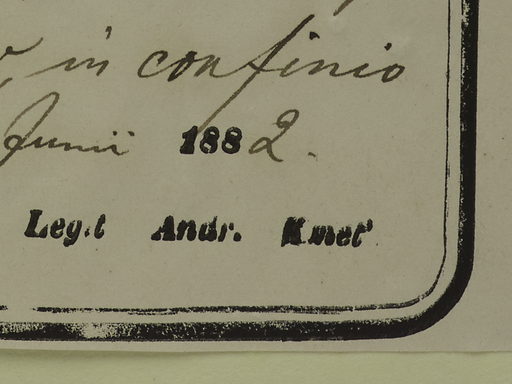 in confinio
Junii 1882.
Leg.t Andr. Kmet'